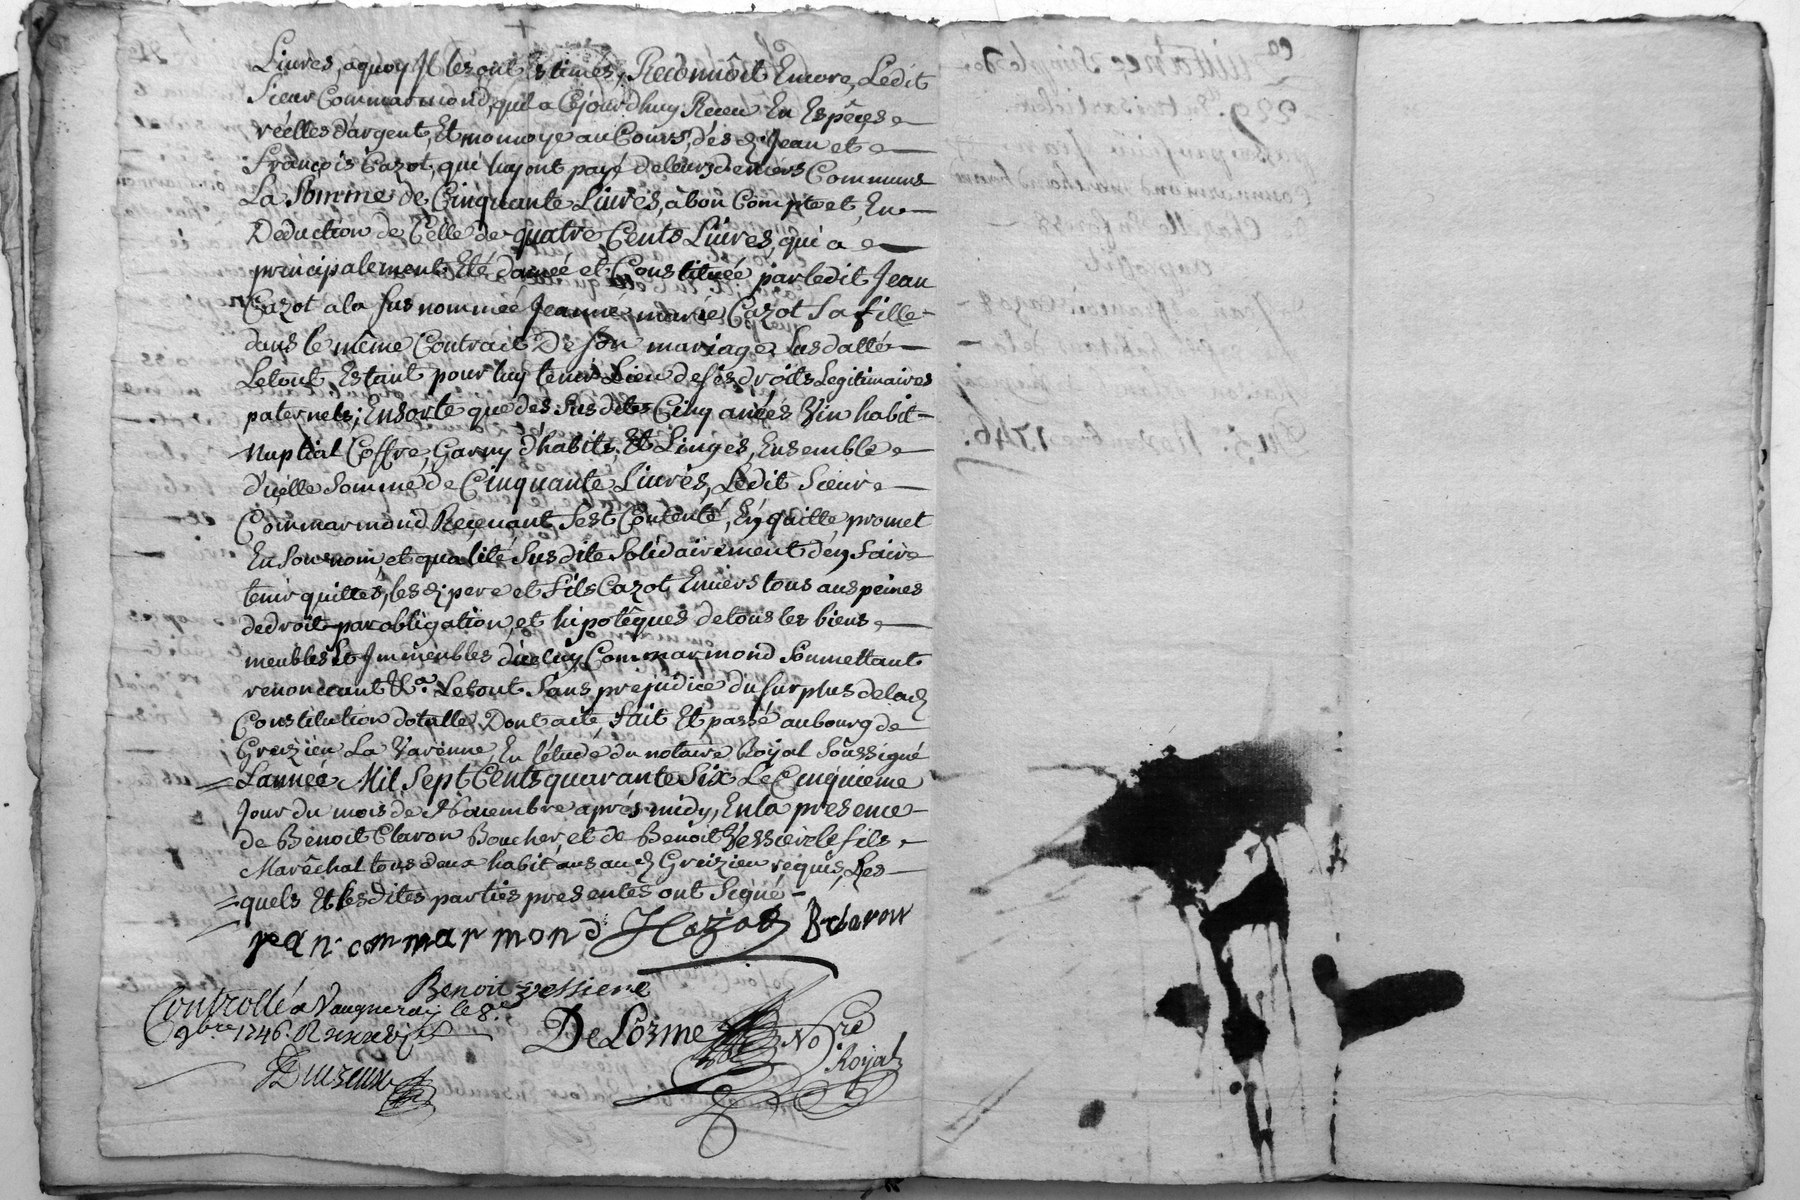 Livres, aquoy Il les ont Estimes, Reconnoit Encore, Ledit
Sieur Commarmond, quil a Cejourdhuy Receu En Espêces
réelles d'argent, Et monnoye au Cours, des d. Jean et
François Cazot, qui luy ont payé de leurs deniers Communs
La Somme de Cinquante Livres, à bon Compte et En
Deduction de Celle de quatre Cents Livres, qui a
principalement Eté donnée et Constituée par ledit Jean
Cazot a la sus nommée Jeanne marie Cazot Sa fille
dans le même Contrait De son mariage Susdatté
Le tout Estant pour luy tenir Lieu de ses droits Legitimaires
paternels; Ensorte que des Susdites Cinq années Vin habit
Nuptial Coffre, Garny d'habits, Et Linges, Ensemble
d'icelle Somme de Cinquante Livres, Ledit Sieur
Commarmond Recevant S'est Contenté, En quitte promet
En Son nom, et qualité Susdite Solidairement d'en faire
tenir quittes, les d. pere et fils Cazot Envers tous aux peines
de droit par obligation, et hipotêques de tous les biens
meubles Et Immeubles d'icluy Commarmond Soumettant
renonceant &a. Le tout Sans prejudice du surplus de lad.
Constitution dotalle Dont acte, fait Et passé au bourg de
Greizieu La Varenne, En l'étude du notaire Royal Soussigné
L'année Mil Sept Cents quarante Six Le Cinquieme
Jour du mois de Novembre après midy, En la presence
de Benoit Claron Boucher, et de Benoit Vessiere le fils
Marêchal tous deux habitans aud. Greizieu requis, Les
quels Et lesdites parties presentes ont Signé
jean commarmond J Cazot B claron
Benoit vessiere
Controllé a Vaugneray le 8.e
9bre 1746. R
De Lorme No.re
Royal
Quittance
229.
Commarmond
Jean & francois Cazot
Du 5. 9bre 1746.